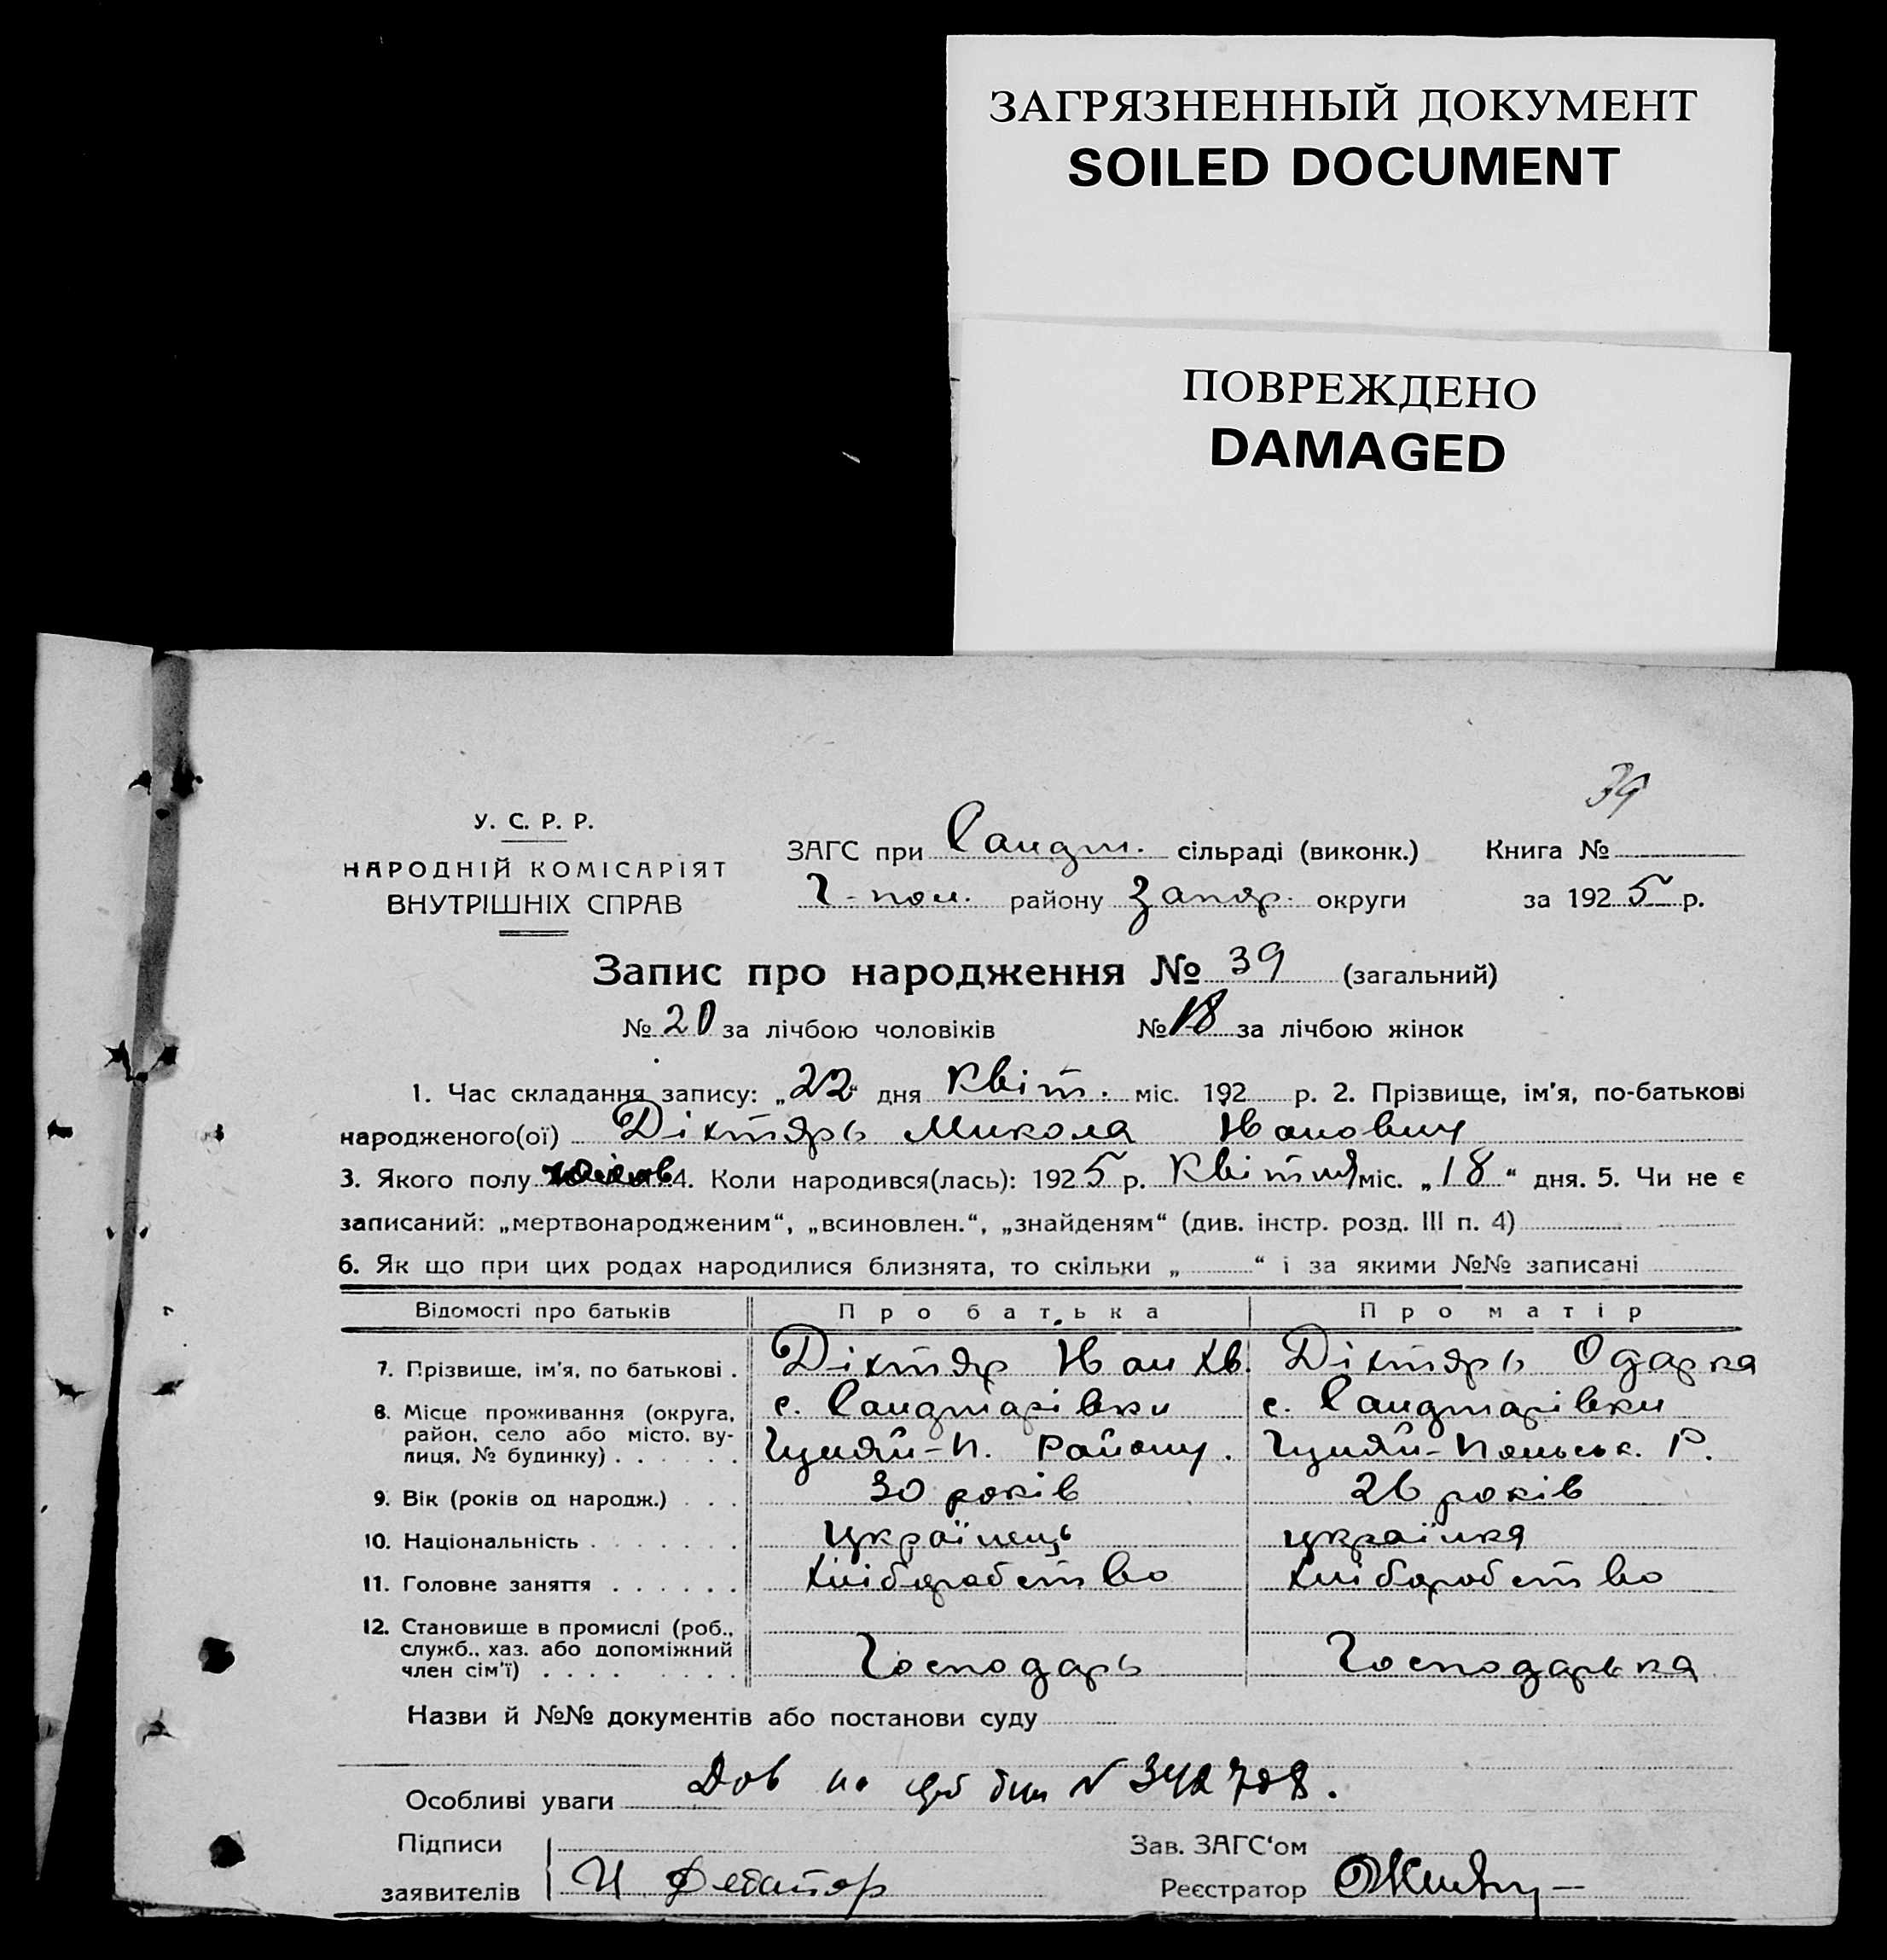 ЗАГРЯЗНЕННЫЙ ДОКУМЕНТ
SOILED DOCUMENT
ПОВРЕЖДЕНО
DAMAGED
39
У. С. Р. Р.
НАРОДНІЙ КОМІСАРІЯТ
ВНУТРІШНІХ СПРАВ
ЗАГС при Сандт. сільраді (виконк.) Книга №
Г-пол. району Запор. округи за 1925 р.
Запис про народження № 39 (загальний)
№ 20 за лічбою чоловіків № 18 за лічбою жінок
1. Час складання запису: „22“ дня Квіт. міс. 192 р. 2. Прізвище, ім'я, по-батькові
народженого(ої) Діхтярь Микола Иванович
3. Якого полу 4. Коли народився(лась): 1925 р. Квітня міс. „18“ дня. 5. Чи не є
записаний: „мертвонародженим“, „всиновлен.“, „знайденям“ (див. інстр. розд. III п. 4)
6. Як що при цих родах народилися близнята, то скільки „ “ і за якими №№ записані
Відомості про батьків Про батька Про матір
7. Прізвище, ім'я, по батькові . Діхтяр Иван Хв. Діхтярь Одарка
8. Місце проживання (округа, район, село або місто, вулиця, № будинку) . . . . . . с. Сандтарівки с. Сандтарівки
Гуляй-П. Району. Гуляй-Польськ. Р.
9. Вік (років од народж.) . . . 30 років 26 років
10. Національність . . . . . . . Українець українка
11. Головне заняття . . . . . . хліборобство хліборобство
12. Становище в промислі (роб., служб., хаз. або допоміжний член сім'ї) . . . . . . . . Господарь Господарька
Назви й №№ документів або постанови суду
Особливі уваги Дов на N 342708.
Підписи Зав. ЗАГС'ом
заявителів И Реєстратор